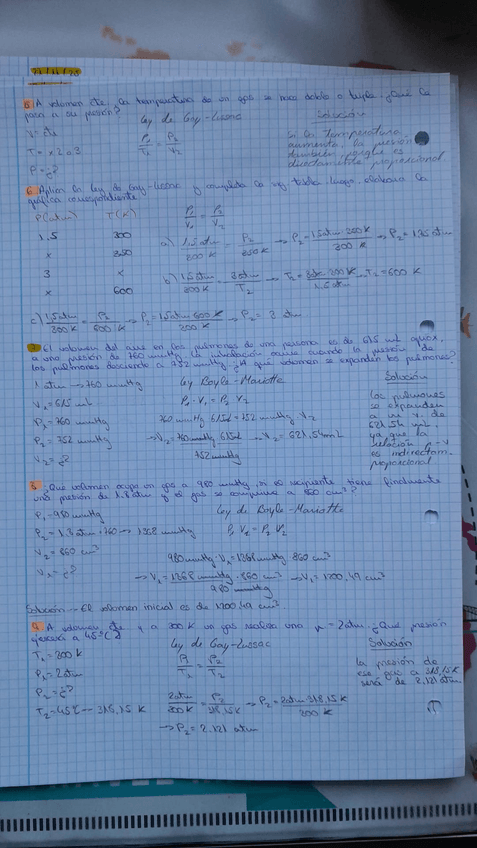 A volumen cte, la temperatura de un gas se hace doble o triple. ¿Qué le
pasa a su presión?
Ley de Gay-Lussac
Solución
V = cte
T = x 2 o 3
P = ¿?
P₁/T₁ = P₂/V₂
Si la temperatura
aumenta, la presión
también porque es
directamente proporcional
6. Aplica la ley de Gay-Lussac y completa la tabla. Luego, elabora la
gráfica correspondiente
P(atm) T(K)
1,5 300
x 350
3 x
x 600
P₁/V₁ = P₂/V₂
a) 1,5 atm/300 K = P₂/350 K → P₂ = 1,5 atm · 350 K/300 K → P₂ = 1,75 atm
b) 1,5 atm/300 K = 3 atm/T₂ → T₂ = 3 atm · 300 K/1,5 atm → T₂ = 600 K
c) 1,5 atm/300 K = P₂/600 K → P₂ = 1,5 atm · 600 K/300 K → P₂ = 3 atm
El volumen del aire en los pulmones de una persona es de 615 mL aprox,
a una presión de 760 mmHg. La inhalación ocurre cuando la presión de
los pulmones desciende a 752 mmHg. ¿A qué volumen se expanden los pulmones?
1 atm → 760 mmHg
Ley Boyle-Mariotte
Solución
V₁ = 615 mL
P₁ · V₁ = P₂ · V₂
P₁ = 760 mmHg
760 mmHg · 615 mL = 752 mmHg · V₂
P₂ = 752 mmHg
→ V₂ = 760 mmHg · 615 mL/752 mmHg → V₂ = 621,54 mL
V₂ = ¿?
Los pulmones
se expanden
a un V. de
621,54 mL,
ya que la
relación P-V
es indirectam.
proporcional
¿Qué volumen ocupa un gas a 980 mmHg, si el recipiente tiene finalmente
una presión de 1,8 atm y el gas se comprime a 860 cm³?
P₁ = 980 mmHg
Ley de Boyle-Mariotte
P₂ = 1,8 atm · 760 → 1368 mmHg
V₂ = 860 cm³
V₁ = ¿?
980 mmHg · V₁ = 1368 mmHg · 860 cm³
→ V₁ = 1368 mmHg · 860 cm³/980 mmHg → V₁ = 1200,49 cm³
Solución → El volumen inicial es de 1200,49 cm³
A volumen cte y a 300 K un gas realiza una P = 2 atm. ¿Qué presión
ejercerá a 45ºC?
T₁ = 300 K
Ley de Gay-Lussac
Solución
P₁ = 2 atm
P₁/T₁ = P₂/T₂
P₂ = ¿?
T₂ = 45ºC → 318,15 K
2 atm/300 K = P₂/318,15 K → P₂ = 2 atm · 318,15 K/300 K
→ P₂ = 2,121 atm
la presión de
ese gas a 318,15 K
será de 2,121 atm